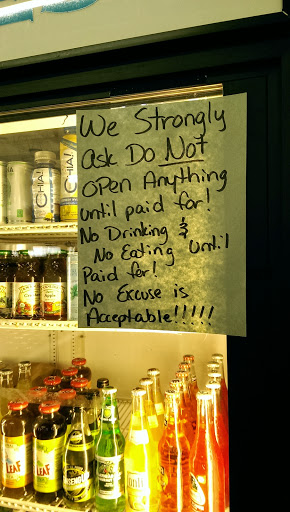 We Strongly
ask Do Not
OPen Anything
until paid for!
No Drinking &
No Eating Until
Paid for!
No Excuse is
Acceptable!!!!!
CHIA!
CHIA!
LEAF
LEAF